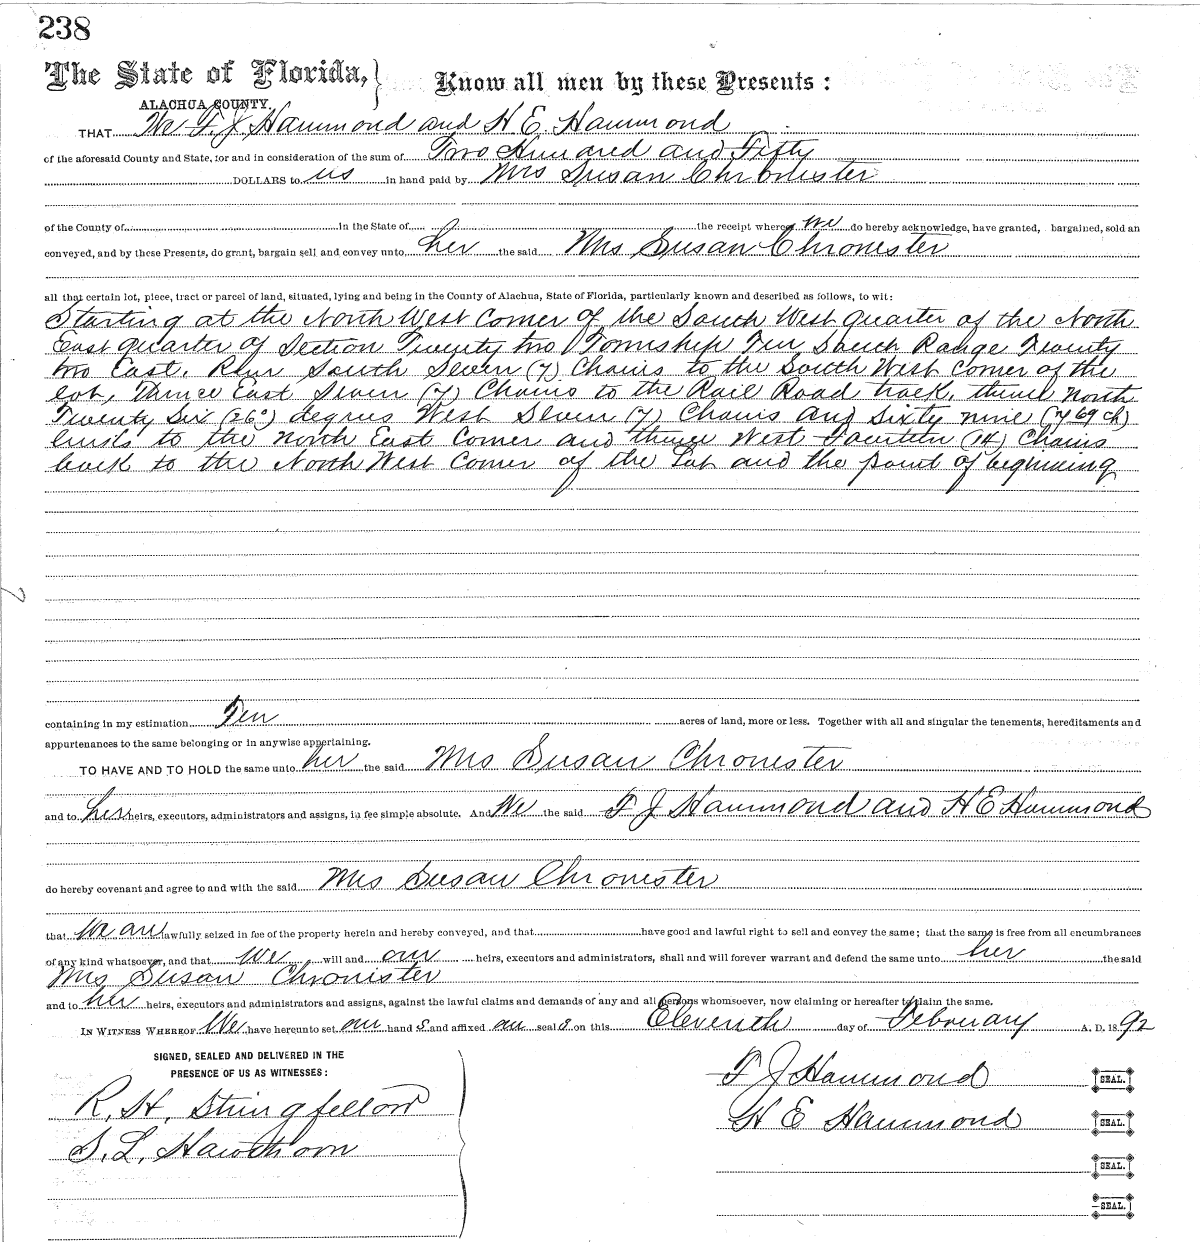 238
The State of Florida, } Know all men by these Presents:
ALACHUA COUNTY.
THAT We F J Hammond and H. E. Hammond
of the aforesaid County and State, for and in consideration of the sum of Two Hundred and Fifty
DOLLARS to us in hand paid by Mrs Susan Chronister
of the County of in the State of the receipt whereof we do hereby acknowledge, have granted, bargained, sold an
conveyed, and by these Presents, do grant, bargain sell and convey unto her the said Mrs Susan Chronester
all that certain lot, piece, tract or parcel of land, situated, lying and being in the County of Alachua, State of Florida, particularly known and described as follows, to wit:
Starting at the North West Corner of the South West quarter of the North
East quarter of Section Twenty two Township Ten South Range Twenty
two East. Run South Seven (7) Chains to the South West Corner of the
lot, Thence East Seven (7) Chains to the Rail Road track, thence North
Twenty Six (26°) degrees West Seven (7) Chains and Sixty nine (7 69 ch)
links to the North East Corner and thence West Fourteen (14) Chains
back to the North West Corner of the Lot and the point of beginning
containing in my estimation Ten acres of land, more or less. Together with all and singular the tenements, hereditaments and
appurtenances to the same belonging or in anywise appertaining.
TO HAVE AND TO HOLD the same unto her the said Mrs Susan Chronister
and to her heirs, executors, administrators and assigns, in fee simple absolute. And We the said F J Hammond and H E Hammond
do hereby covenant and agree to and with the said Mrs Susan Chronister
that We are lawfully seized in fee of the property herein and hereby conveyed, and that have good and lawful right to sell and convey the same; that the same is free from all encumbrances
of any kind whatsoever, and that We will and our heirs, executors and administrators, shall and will forever warrant and defend the same unto her the said
Mrs Susan Chronister
and to her heirs, executors and administrators and assigns, against the lawful claims and demands of any and all persons whomsoever, now claiming or hereafter to claim the same.
IN WITNESS WHEREOF We have hereunto set our hand s and affixed our seal s on this Eleventh day of February A. D. 1892
SIGNED, SEALED AND DELIVERED IN THE
PRESENCE OF US AS WITNESSES:
R. H. Stringfellow
S. L. Hawthorn
F J Hammond SEAL.
H E Hammond SEAL.
SEAL.
SEAL.